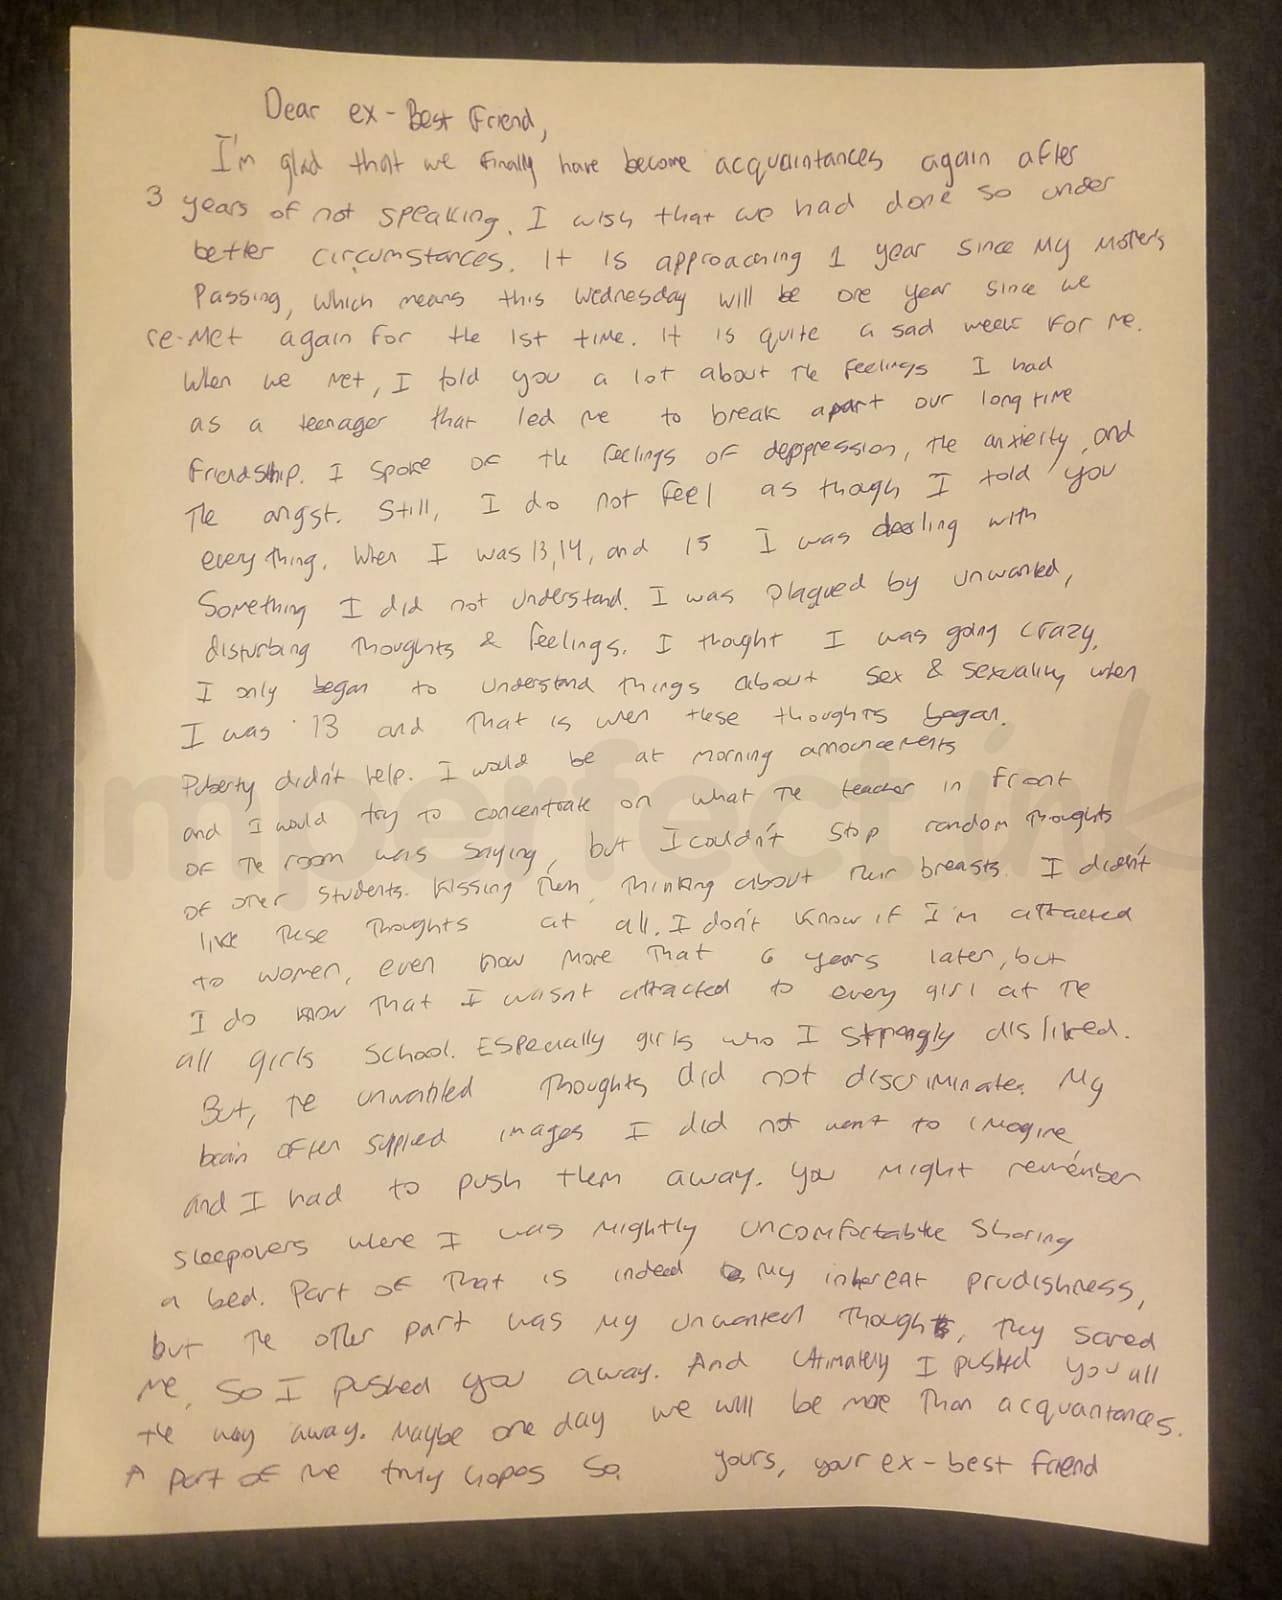 Dear ex-Best Friend,
I'm glad that we finally have become acquaintances again after
3 years of not speaking. I wish that we had done so under
better circumstances. It is approaching 1 year since my mother's
passing, which means this Wednesday will be one year since we
re-met again for the 1st time. It is quite a sad week for me.
When we met, I told you a lot about the feelings I had
as a teenager that led me to break apart our long time
friendship. I spoke of the feelings of deppression, the anxierty, and
the angst. Still, I do not feel as though I told you
everything. When I was 13, 14, and 15 I was dealing with
something I did not understand. I was plagued by unwanted,
disturbing thoughts & feelings. I thought I was going crazy.
I only began to understand things about sex & sexuality when
I was 13 and that is when these thoughts began.
Puberty didn't help. I would be at morning announcements
and I would try to concentrate on what the teacher in front
of the room was saying, but I couldn't stop random thoughts
of other students. Kissing them, thinking about their breasts. I didn't
like these thoughts at all. I don't know if I'm attracted
to women, even now more that 6 years later, but
I do know that I wasn't attracted to every girl at the
all girls school. Especially girls who I strongly disliked.
But, the unwanted thoughts did not discriminate. My
brain often supplied images I did not want to imagine
and I had to push them away. You might remember
sleepovers where I was mightly uncomfortable sharing
a bed. Part of that is indeed my inhereat prudishness,
but the other part was my unwanted thoughts, they scared
me, so I pushed you away. And ultimately I pushed you all
the way away. Maybe one day we will be more than acquantances.
A part of me truly hopes so. yours, your ex-best friend
imperfect.ink